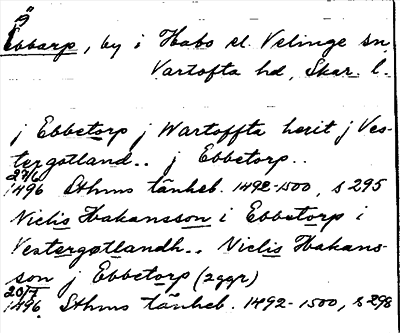 Ebbarp, by i Habo el. Velinge sn,
Vartofta hd, Skar. l.
j Ebbetorp j Wartoffta herit j Ves-
tergøtland.. j Ebbetorp..
27/6
1496 Sthms tänkeb. 1492-1500, s 295
Niclis Hakansson i Ebbetorp i
Vestergøtlandh.. Niclis Hakans-
son j Ebbetorp (2 ggr)
20/7
1496. Sthms tänkeb. 1492-1500, s 298